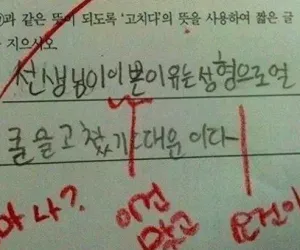 과 같은 뜻이 되도록 '고치다'의 뜻을 사용하여 짧은 글
지으시오
선생님이 이쁜 이유는 성형으로 얼
굴을 고쳤기 때문이다
나?
이건
맞고